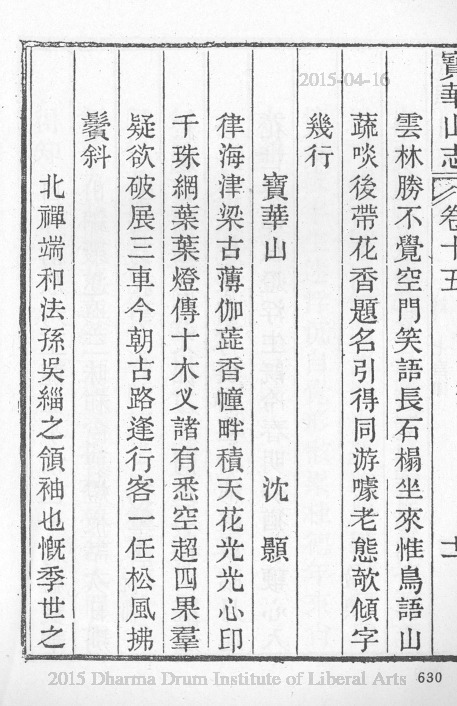 寶華山志 卷十五 十一
雲林勝不覺空門笑語長石榻坐來惟鳥語山
蔬啖後帶花香題名引得同游噱老態欹傾字
幾行
寶華山 沈顥
律海津梁古薄伽蓗香幢畔積天花光光心印
千珠網葉葉燈傳十木义諸有悉空超四果羣
疑欲破展三車今朝古路逢行客一任松風拂
鬢斜
北禪端和法孫吳緇之領袖也慨季世之
2015-04-16
2015 Dharma Drum Institute of Liberal Arts 630